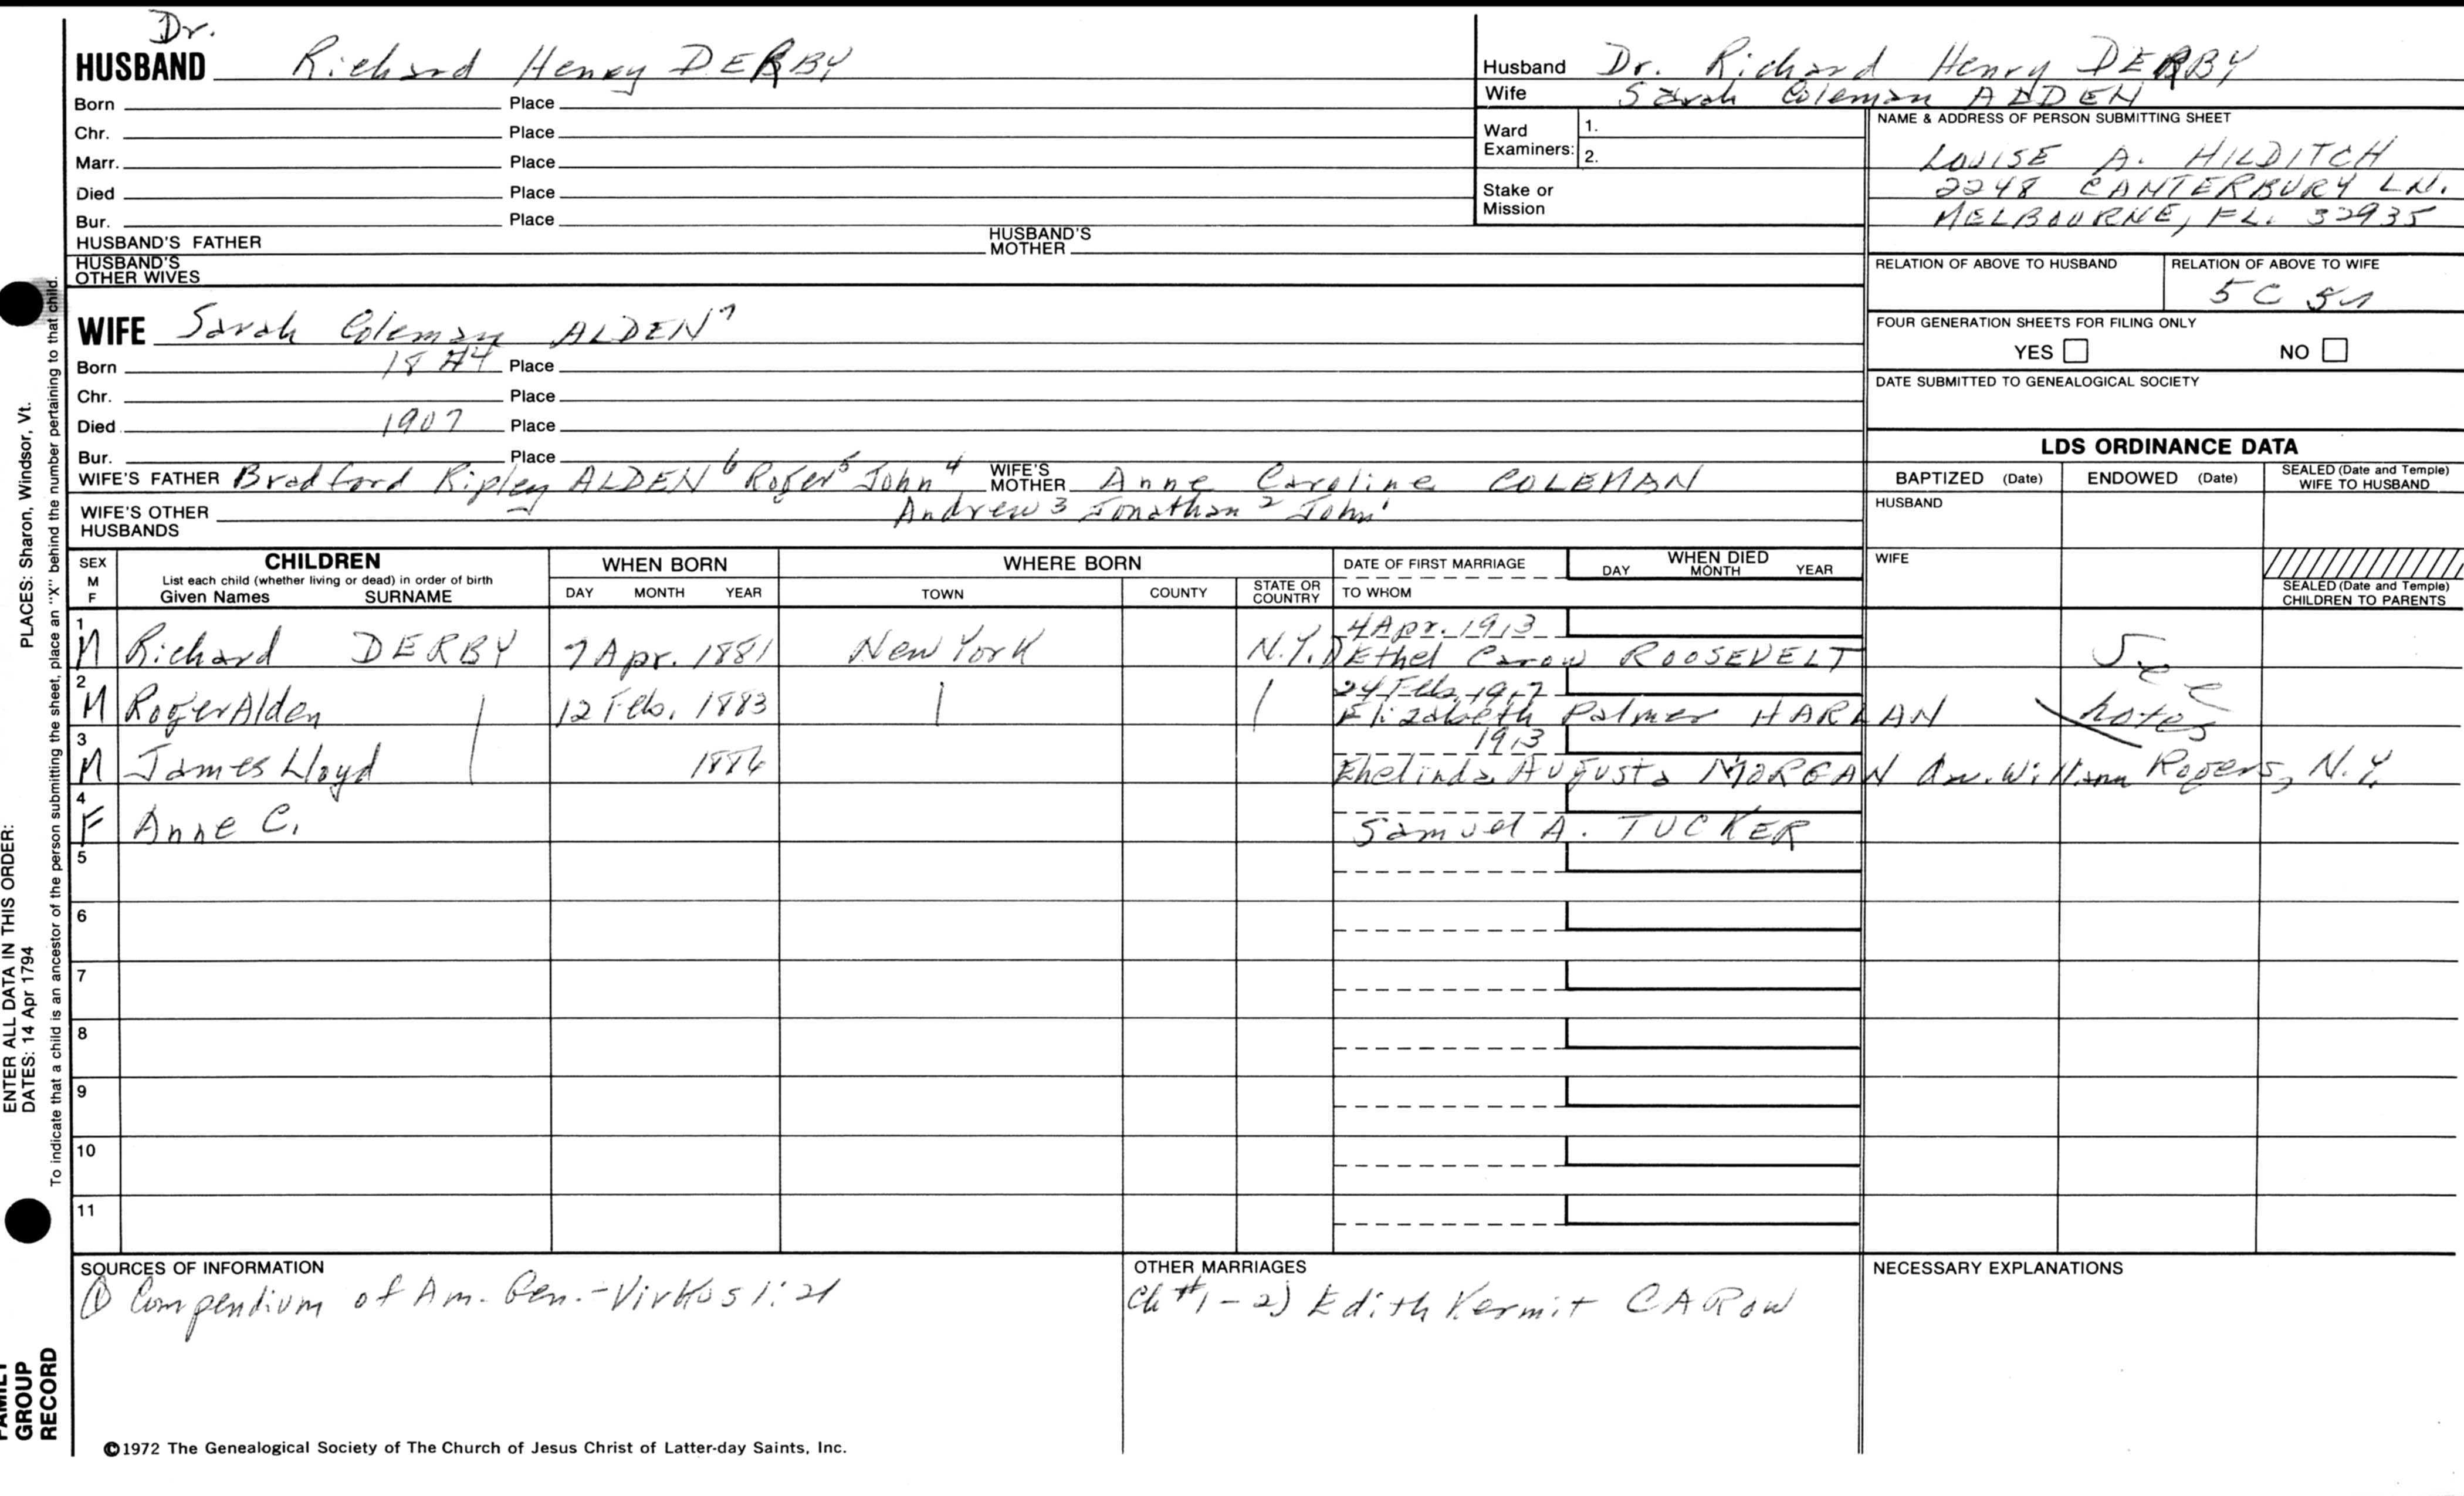 Dr.
HUSBAND Richard Henry DERBY
Born Place
Chr. Place
Marr. Place
Died Place
Bur. Place
HUSBAND'S FATHER HUSBAND'S MOTHER
HUSBAND'S OTHER WIVES
Husband Dr. Richard Henry DERBY
Wife Sarah Coleman ALDEN
Ward Examiners: 1.
2.
Stake or Mission
NAME & ADDRESS OF PERSON SUBMITTING SHEET
LOUISE A. HILDITCH
2248 CANTERBURY LN.
MELBOURNE, FL. 32935
RELATION OF ABOVE TO HUSBAND RELATION OF ABOVE TO WIFE
5 C
FOUR GENERATION SHEETS FOR FILING ONLY
YES NO
DATE SUBMITTED TO GENEALOGICAL SOCIETY
WIFE Sarah Coleman ALDEN 7
Born Place
Chr. Place
Died 1907 Place
Bur. Place
WIFE'S FATHER Bradford Ripley ALDEN 6 Roger 5 John 4 WIFE'S MOTHER Anne Caroline COLEMAN
Andrew 3 Jonathan 2 John 1
WIFE'S OTHER HUSBANDS
LDS ORDINANCE DATA
BAPTIZED (Date) ENDOWED (Date) SEALED (Date and Temple) WIFE TO HUSBAND
HUSBAND
WIFE
SEALED (Date and Temple) CHILDREN TO PARENTS
SEX M F CHILDREN WHEN BORN WHERE BORN DATE OF FIRST MARRIAGE WHEN DIED
List each child (whether living or dead) in order of birth
Given Names SURNAME DAY MONTH YEAR TOWN COUNTY STATE OR COUNTRY TO WHOM DAY MONTH YEAR
4 Apr. 1913
1 M Richard DERBY 7 Apr. 1881 New York N.Y. Ethel Carow ROOSEVELT See
24 Feb. 1917
2 M Roger Alden 12 Feb. 1883 Elizabeth Palmer HARLAN notes
1913
3 M James Lloyd Ehelinda Augusta MORGAN dau. William Rogers, N.Y.
4 F Anne C. Samuel A. TUCKER
5
6
7
8
9
10
11
SOURCES OF INFORMATION
① Compendium of Am. Gen. - Virkus 1:21
OTHER MARRIAGES
Ch #1 - 2) Edith Kermit CAROW
NECESSARY EXPLANATIONS
©1972 The Genealogical Society of The Church of Jesus Christ of Latter-day Saints, Inc.
ENTER ALL DATA IN THIS ORDER:
PLACES: Sharon, Windsor, Vt.
DATES: 14 Apr 1794
To indicate that a child is an ancestor of the person submitting the sheet, place an "X" behind the number pertaining to that child.
FAMILY GROUP RECORD